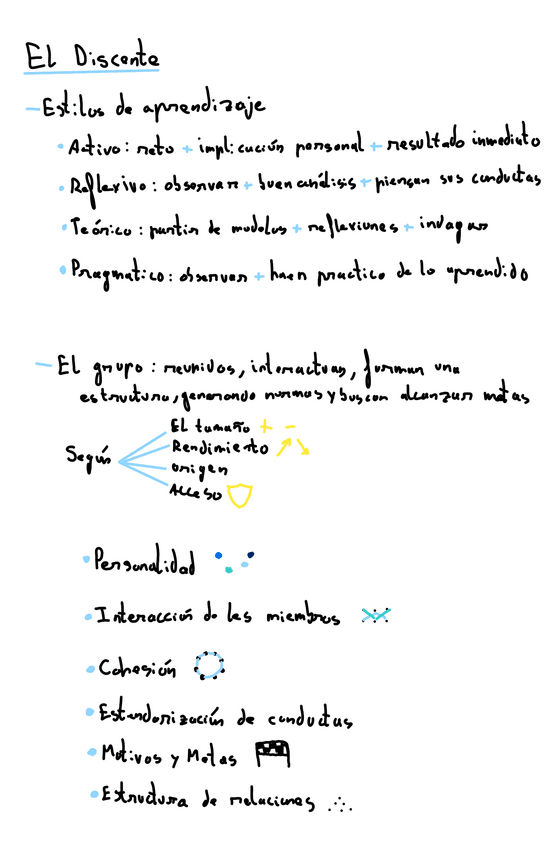 El Discente
- Estilos de aprendizaje
• Activo: reto + implicación personal + resultado inmediato
• Reflexivo: observar + buen análisis + piensan sus conductas
• Teórico: partir de modelos + reflexiones + indagar
• Pragmático: observar + hacen practico de lo aprendido
- El grupo: reunidos, interactuan, forman una
estructura, generando normas y buscan alcanzar metas
El tamaño + -
Rendimiento
Según
origen
Acceso
• Personalidad
• Interacción de les miembros
• Cohesión
• Estandarización de conductas
• Motivos y Metas
• Estructura de relaciones